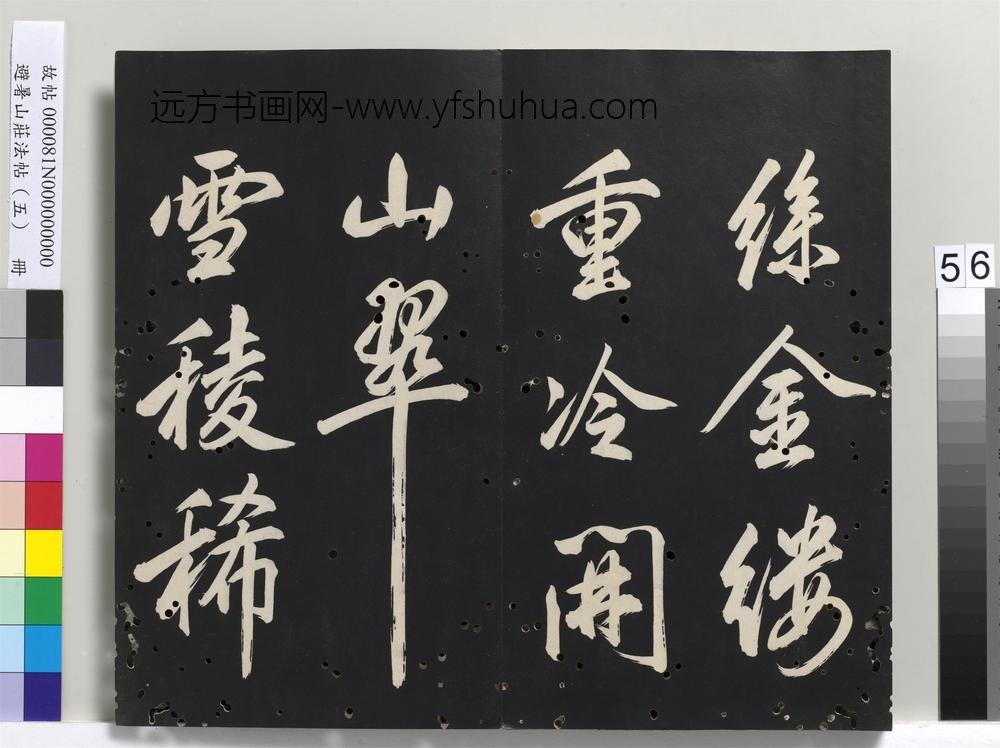 远方书画网-www.yfshuhua.com
絲金縷
重冷開
山翠
雪稜稀
56
故帖 000081N000000000
避暑山莊法帖(五) 冊